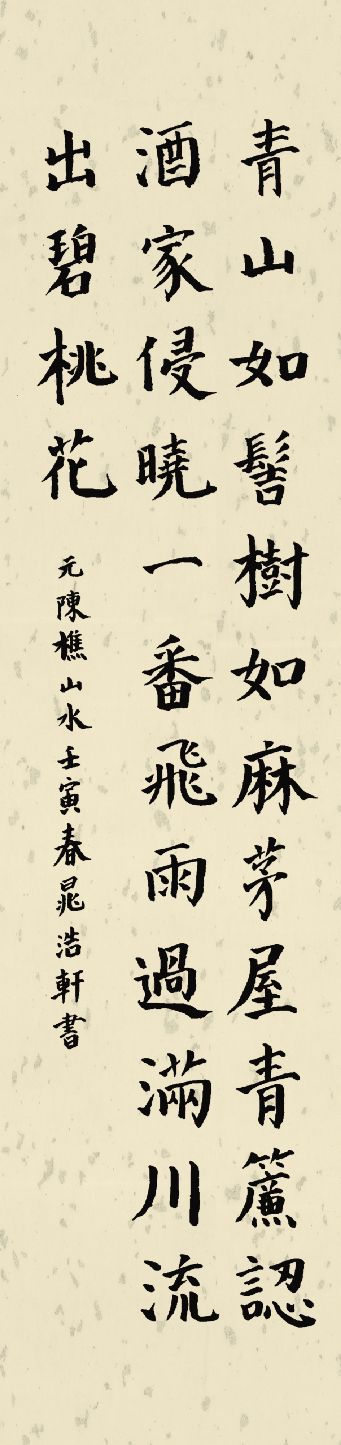 青山如髻樹如麻茅屋青簾認
酒家侵曉一番飛雨過滿川流
出碧桃花
元陳樵山水壬寅春晁浩軒書